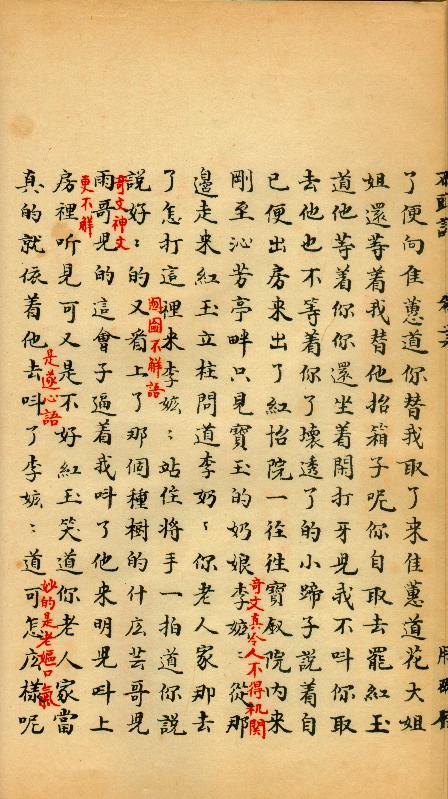 了便向隹蕙道你替我取了来隹蕙道花大姐
姐還等着我替他抬箱子呢你自取去罷紅玉
道他等着你你還坐着閑打牙児我不呌你取
去他也不等着你了壞透了的小蹄子説着自
已便出房来出了紅怡院一径徃寳釵院内来
奇文真令人不得机関
剛至沁芳亭畔只見寳玉的奶娘李嬷〻從那
邉走来紅玉立柱問道李奶〻你老人家那去
了怎打這裡来李嬷〻站住将手一拍道你説
囫圇不解語
說好〻的又看上了那個種樹的什庅芸哥児
奇文神文
雨哥児的這會子逼着我呌了他来明児呌上
更不解
房裡听見可又是不好紅玉笑道你老人家當
是遂心語
妙的是老嫗口氣
真的就依着他去呌了李嬷〻道可怎庅樣呢